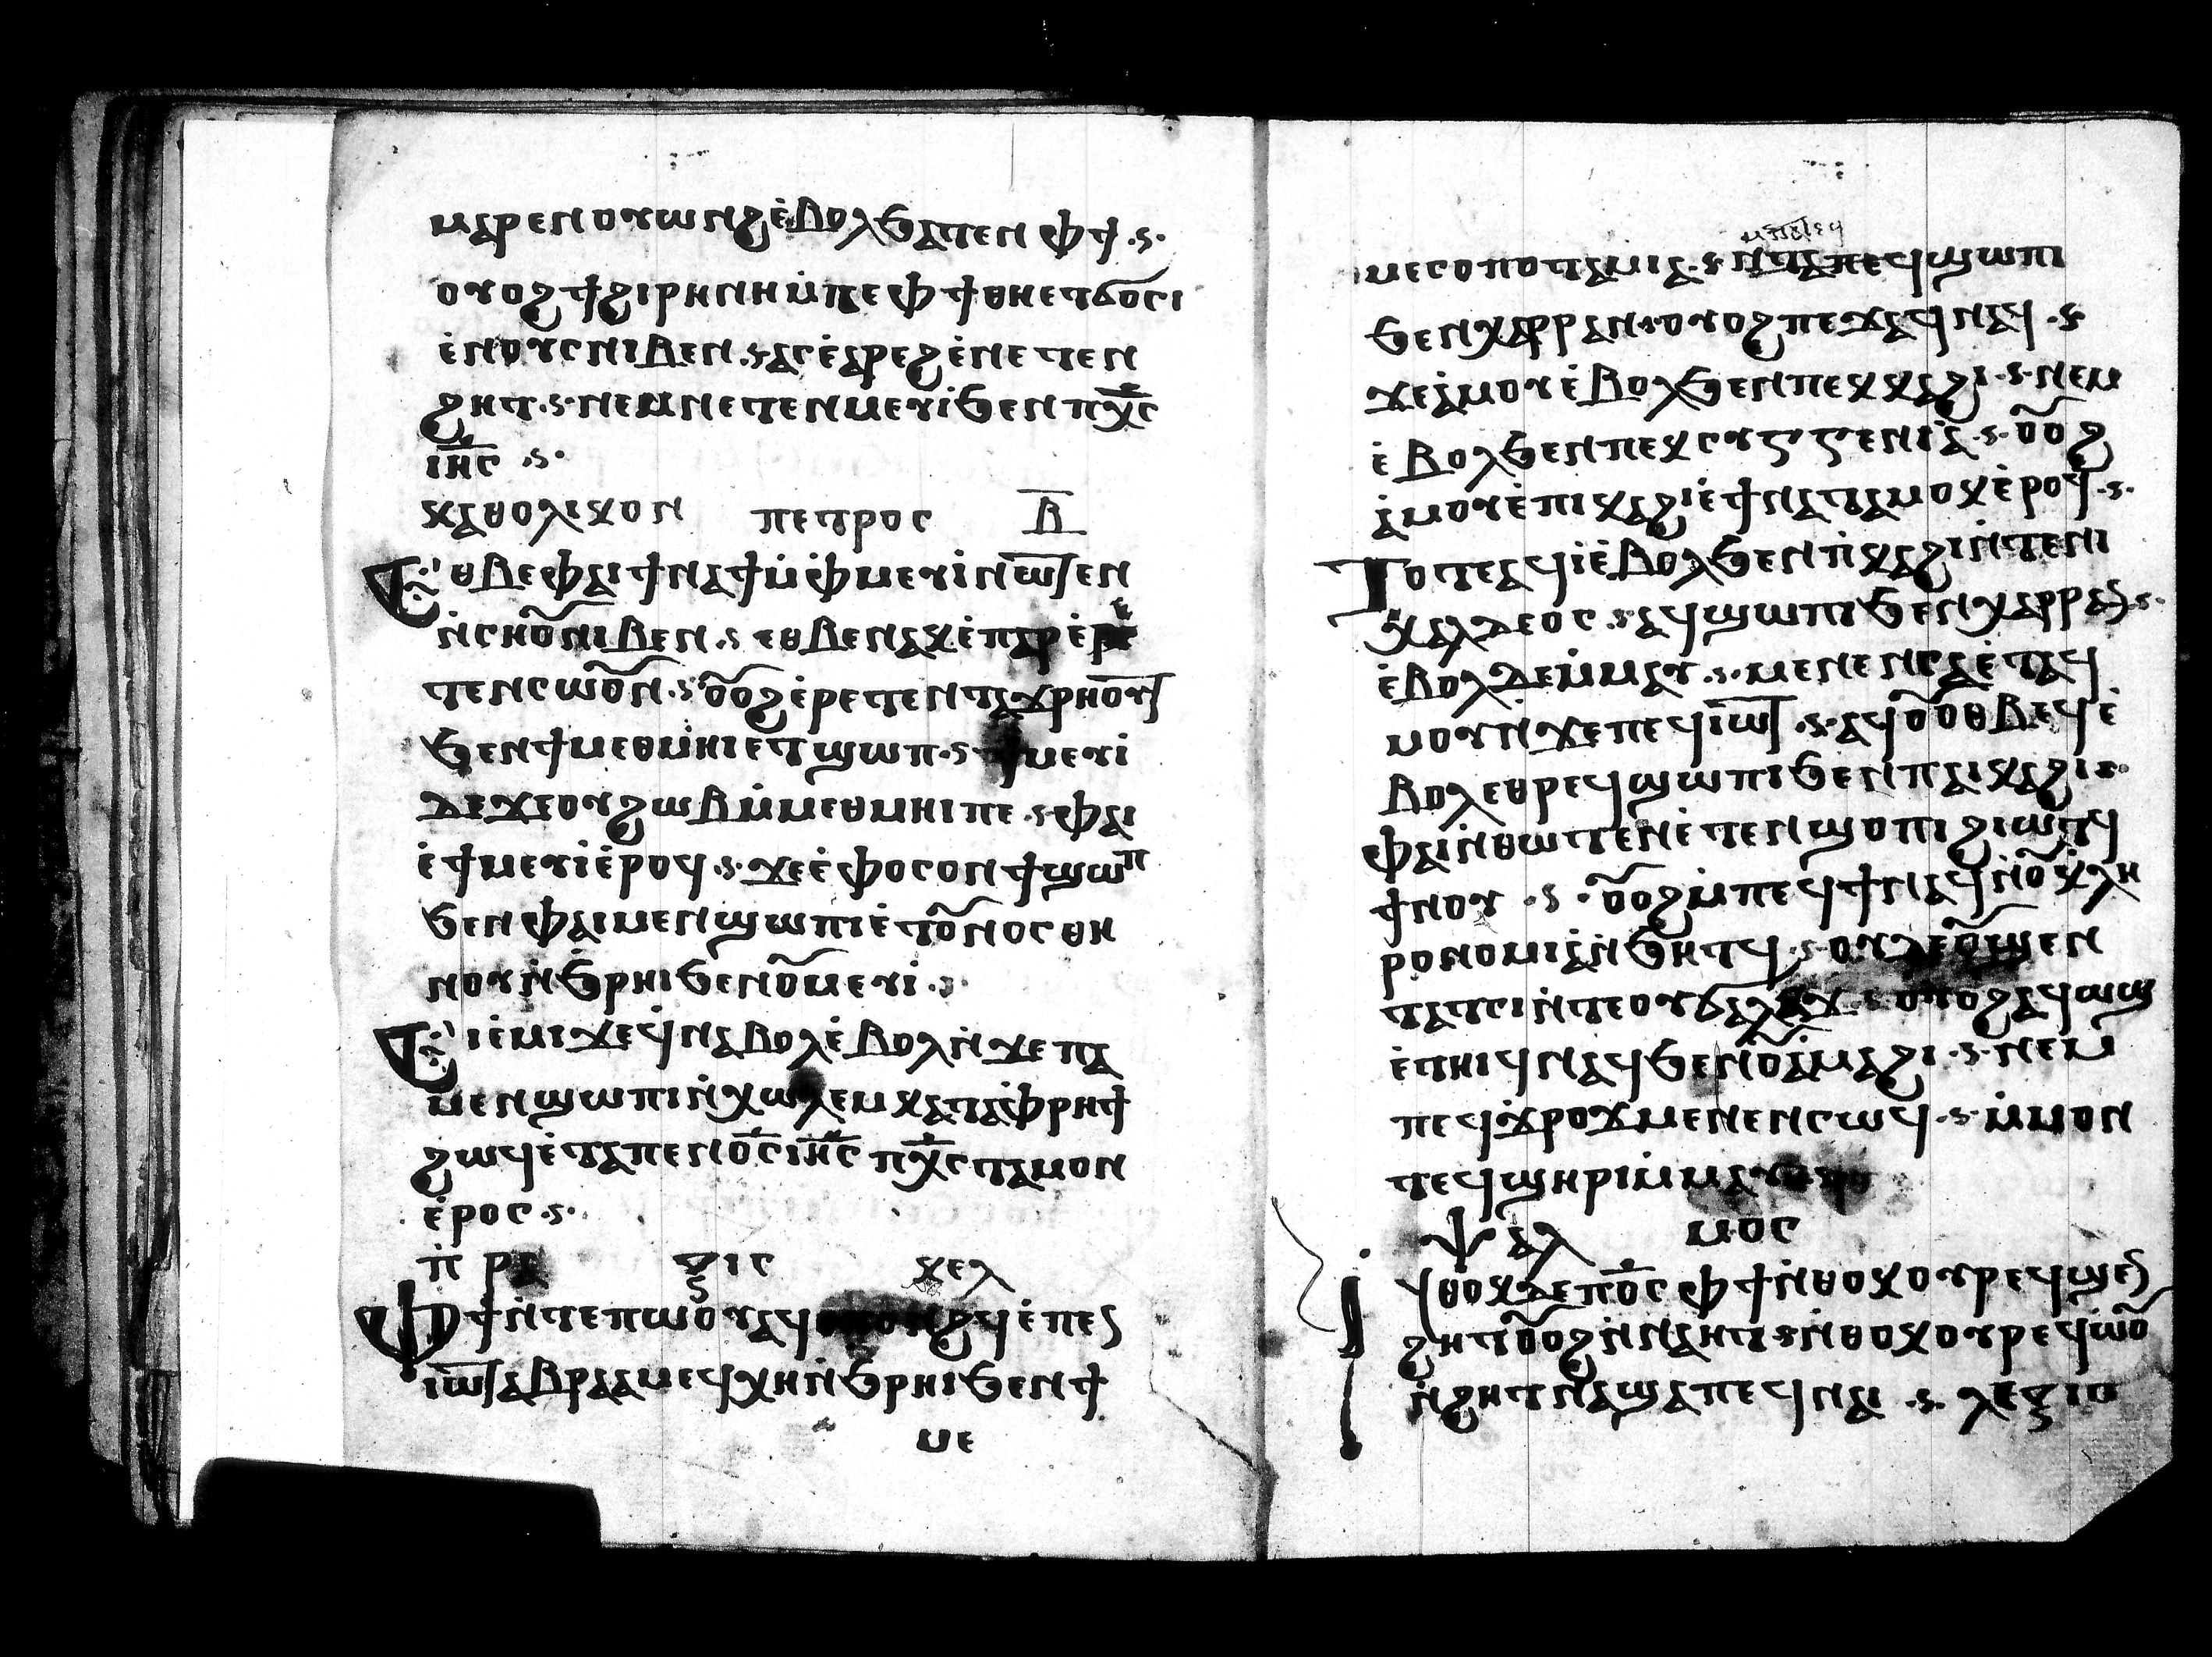 ⲙⲁⲣⲉⲛⲟⲩⲱⲛϩⲉ̀ⲃⲟⲗϧⲁⲧⲉⲛ ⲫϯ ·ⲋ·
ⲟⲩⲟϩϯϩⲓⲣⲏⲛⲏⲙ̀ⲧⲉⲫϯⲑⲏⲉⲧϭⲟⲥⲓ
ⲉ̀ⲛⲟⲩⲥⲛⲓⲃⲉⲛ ·ⲋ ⲁⲥⲉ̀ⲁⲣⲉϩⲉ̀ⲛⲉⲧⲉⲛ
ϩⲏⲧ ·ⲋ· ⲛⲉⲙⲛⲉⲧⲉⲛⲙⲉⲩⲓ̀ϧⲉⲛⲡⲭ̅ⲥ̅
ⲓⲏ̅ⲥ̅ ·ⲋ·
ⲕⲁⲑⲟⲗⲓⲕⲟⲛ ⲡⲉⲧⲣⲟⲥ ⲃ̅
ⲉⲑⲃⲉⲫⲁⲓϯⲛⲁϯⲙ̀ⲫ̀ⲙⲉⲩⲓ̀ⲛⲱⲧⲉⲛ
ⲛ̀ⲥⲏⲟ̃ⲛⲓⲃⲉⲛ ·ⲋ ⲉⲑⲃⲉⲛⲁⲕⲉ̀ⲧⲁⲣⲉ̀ⲣⲉ
ⲧⲉⲛⲥⲱⲟ̃ⲛ ·ⲋ· ⲟ̃ⲟϩⲉ̀ⲣⲉⲧⲉⲛⲧⲁϫⲣⲏⲟⲩⲧ
ϧⲉⲛϯⲙⲉⲑⲙ̀ⲏⲓⲉⲧϣⲱⲡ ·ⲋ· ϯⲙⲉⲩⲓ̀
ⲇⲉϫⲉⲟⲩϩⲱⲃⲙ̀ⲙⲉⲑⲙⲏⲓⲡⲉ ·ⲋ· ⲫⲁⲓ
ⲉ̀ϯⲙⲉⲩⲓ̀ⲉ̀ⲣⲟϥ ·ⲋ· ϫⲉⲉ̀ⲫⲟⲥⲟⲛϯϣⲱⲡ
ϧⲉⲛⲫⲁⲓⲙⲉⲛϣⲱⲡⲓⲉ̀ⲧⲟ̃ⲛⲟⲥⲑⲏ
ⲛⲟⲩⲛ̀ϧⲣⲏⲓϧⲉⲛⲟ̃ⲙⲉⲩⲓ ·ⲋ·
ⲉⲓⲉ̀ⲙⲓϫⲉϥ̀ⲛⲁⲃⲟⲗⲉ̀ⲃⲟⲗⲛ̀ϫⲉⲡⲁ
ⲙⲉⲛϣⲱⲡⲓⲛ̀ⲭⲱⲗⲉⲙⲕⲁⲧⲁⲫ̀ⲣⲏϯ
ϩⲱϥⲉ̀ⲧⲁⲡⲉⲛⲟ̅ⲥ̅ⲓⲏ̅ⲥ̅ ⲡⲭ̅ⲥ̅ⲧⲁⲙⲟⲛ
ⲉ̀ⲣⲟⲥ ·ⲋ·
ⲡ̀ⲣⲁ ⲝⲓⲥ ⲕⲉⲗ
ⲫϯⲛ̀ⲧⲉⲡⲱⲟ̀ⲩⲁϥⲟⲩⲟⲛϩϥⲉ̀ⲡⲉⲛ
ⲓⲱⲧⲁⲃⲣⲁⲁⲙⲉϥⲭⲏⲛ̀ϧⲣⲏⲓϧⲉⲛϯ
ⲙⲉ
ⲙⲉⲥⲟⲡⲟⲧⲁⲙⲓⲁ ·ⲋ· ⲛ̀ⲧⲁⲡⲉϥϣⲱⲡⲓ
ϧⲉⲛⲭⲁⲣⲣⲁⲛ ·ⲋ· ⲟⲩⲟϩⲡⲉϫⲁϥⲛⲁϥ ·ⲋ·
ϫⲉⲁ̀ⲙⲟⲩⲉ̀ⲃⲟⲗϧⲉⲛⲡⲉⲕⲕⲁϩⲓ ·ⲋ· ⲛⲉⲙ
ⲉ̀ⲃⲟⲗϧⲉⲛⲡⲉⲕⲥⲩⲅⲅⲉⲛⲓⲁ̀ ·ⲋ· ⲟ̃ⲟϩ
ⲁ̀ⲙⲟⲩⲉ̀ⲡⲓⲕⲁϩⲓⲉ̀ϯⲛⲁⲧⲁⲙⲟⲕⲉ̀ⲣⲟϥ ·ⲋ·
ⲧⲟⲧⲉⲁϥⲓ̀ⲉ̀ⲃⲟⲗϧⲉⲛⲡ̀ⲕⲁϩⲓⲛ̀ⲧⲉⲛⲓ
ⲭⲁⲗⲇⲉⲟⲥ ·ⲋ· ⲁϥϣⲱⲡⲓϧⲉⲛⲭⲁⲣⲣⲁⲛ ·ⲋ·
ⲉ̀ⲃⲟⲗⲇⲉⲙ̀ⲙⲁⲩ ·ⲋ· ⲙⲉⲛⲉⲛⲥⲁⲉ̀ⲧⲁϥ
ⲙⲟⲩⲛ̀ϫⲉⲡⲉϥⲓ̀ⲱⲧ ·ⲋ· ⲁϥⲟ̃ⲟⲑⲃⲉϥⲉ̀
ⲃⲟⲗⲉⲑⲣⲉϥϣⲱⲡⲓϧⲉⲛⲡⲁⲓⲕⲁϩⲓ ·ⲋ·
ⲫⲁⲓⲛ̀ⲑⲱⲧⲉⲛⲉ̀ⲧⲉⲛϣⲟⲡⲓϩⲓⲱⲧϥ
ϯⲛⲟⲩ ·ⲋ· ⲟ̃ⲟϩⲙ̀ⲡⲉϥϯⲛⲁϥⲛ̀ⲟ̃ⲕ̀ⲗⲏ
ⲣⲟⲛⲟⲙⲓⲁ̀ⲛ̀ϧⲏⲧϥ ·ⲋ· ⲟⲩⲇⲉⲟ̃ϣⲉⲛ
ⲧⲁⲧⲥⲓⲛ̀ⲧⲉⲟⲩϭⲁⲗⲟϫ ·ⲋ ⲟⲩⲟϩⲁϥⲱϣ
ⲉ̀ⲧⲏⲓϥⲛⲁϥϧⲉⲛⲟ̃ⲁ̀ⲙⲁϩⲓ ·ⲋ· ⲛⲉⲙ
ⲡⲉϥϫⲣⲟϫⲙⲉⲛⲉⲛⲥⲱϥ ·ⲋ· ⲙ̀ⲙⲟⲛ
ⲧⲉϥϣⲏⲣⲓⲙ̀ⲙⲁⲩ
ⲯⲁⲗ ⲙⲟⲥ
ⲛⲑⲟⲕⲇⲉⲡⲟ̅ⲥ̅ ⲫϯⲛ̀ⲑⲟⲕⲟⲩⲣⲉϥϣⲉⲛ
ϩⲏⲧⲟ̃ⲟϩⲛ̀ⲛⲁⲏⲧ ·ⲋ· ⲛ̀ⲑⲟⲕⲟⲩⲣⲉϥⲱⲟ̃
ⲛ̀ϩⲏⲧⲛⲁϣⲁⲡⲉϥⲛⲁⲓ ·ⲋ· ⲗⲉⲝⲓⲥ